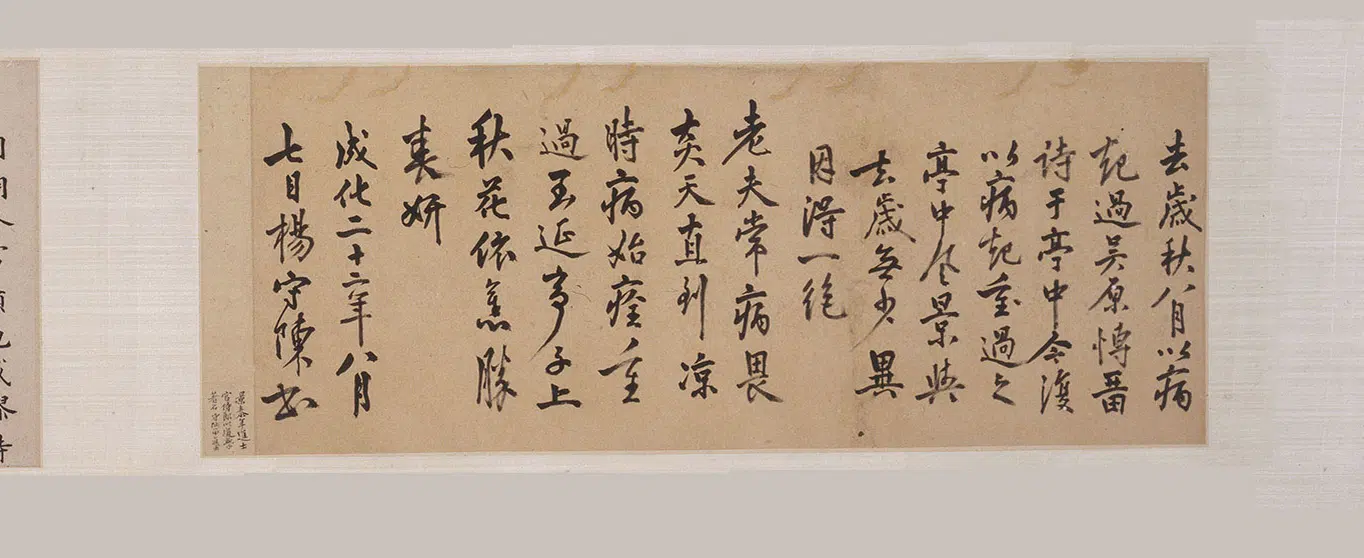 去歲秋八月以病
起過吳原博留
詩于亭中今復
以病起重過之
亭中风景與
去歲無少異
因得一絕
老夫常病畏
炎天直到凉
時病始痊重
過玉延亭子上
秋花依舊勝
裳妍
成化二十二年八月
七日楊守陳书
景泰年進士